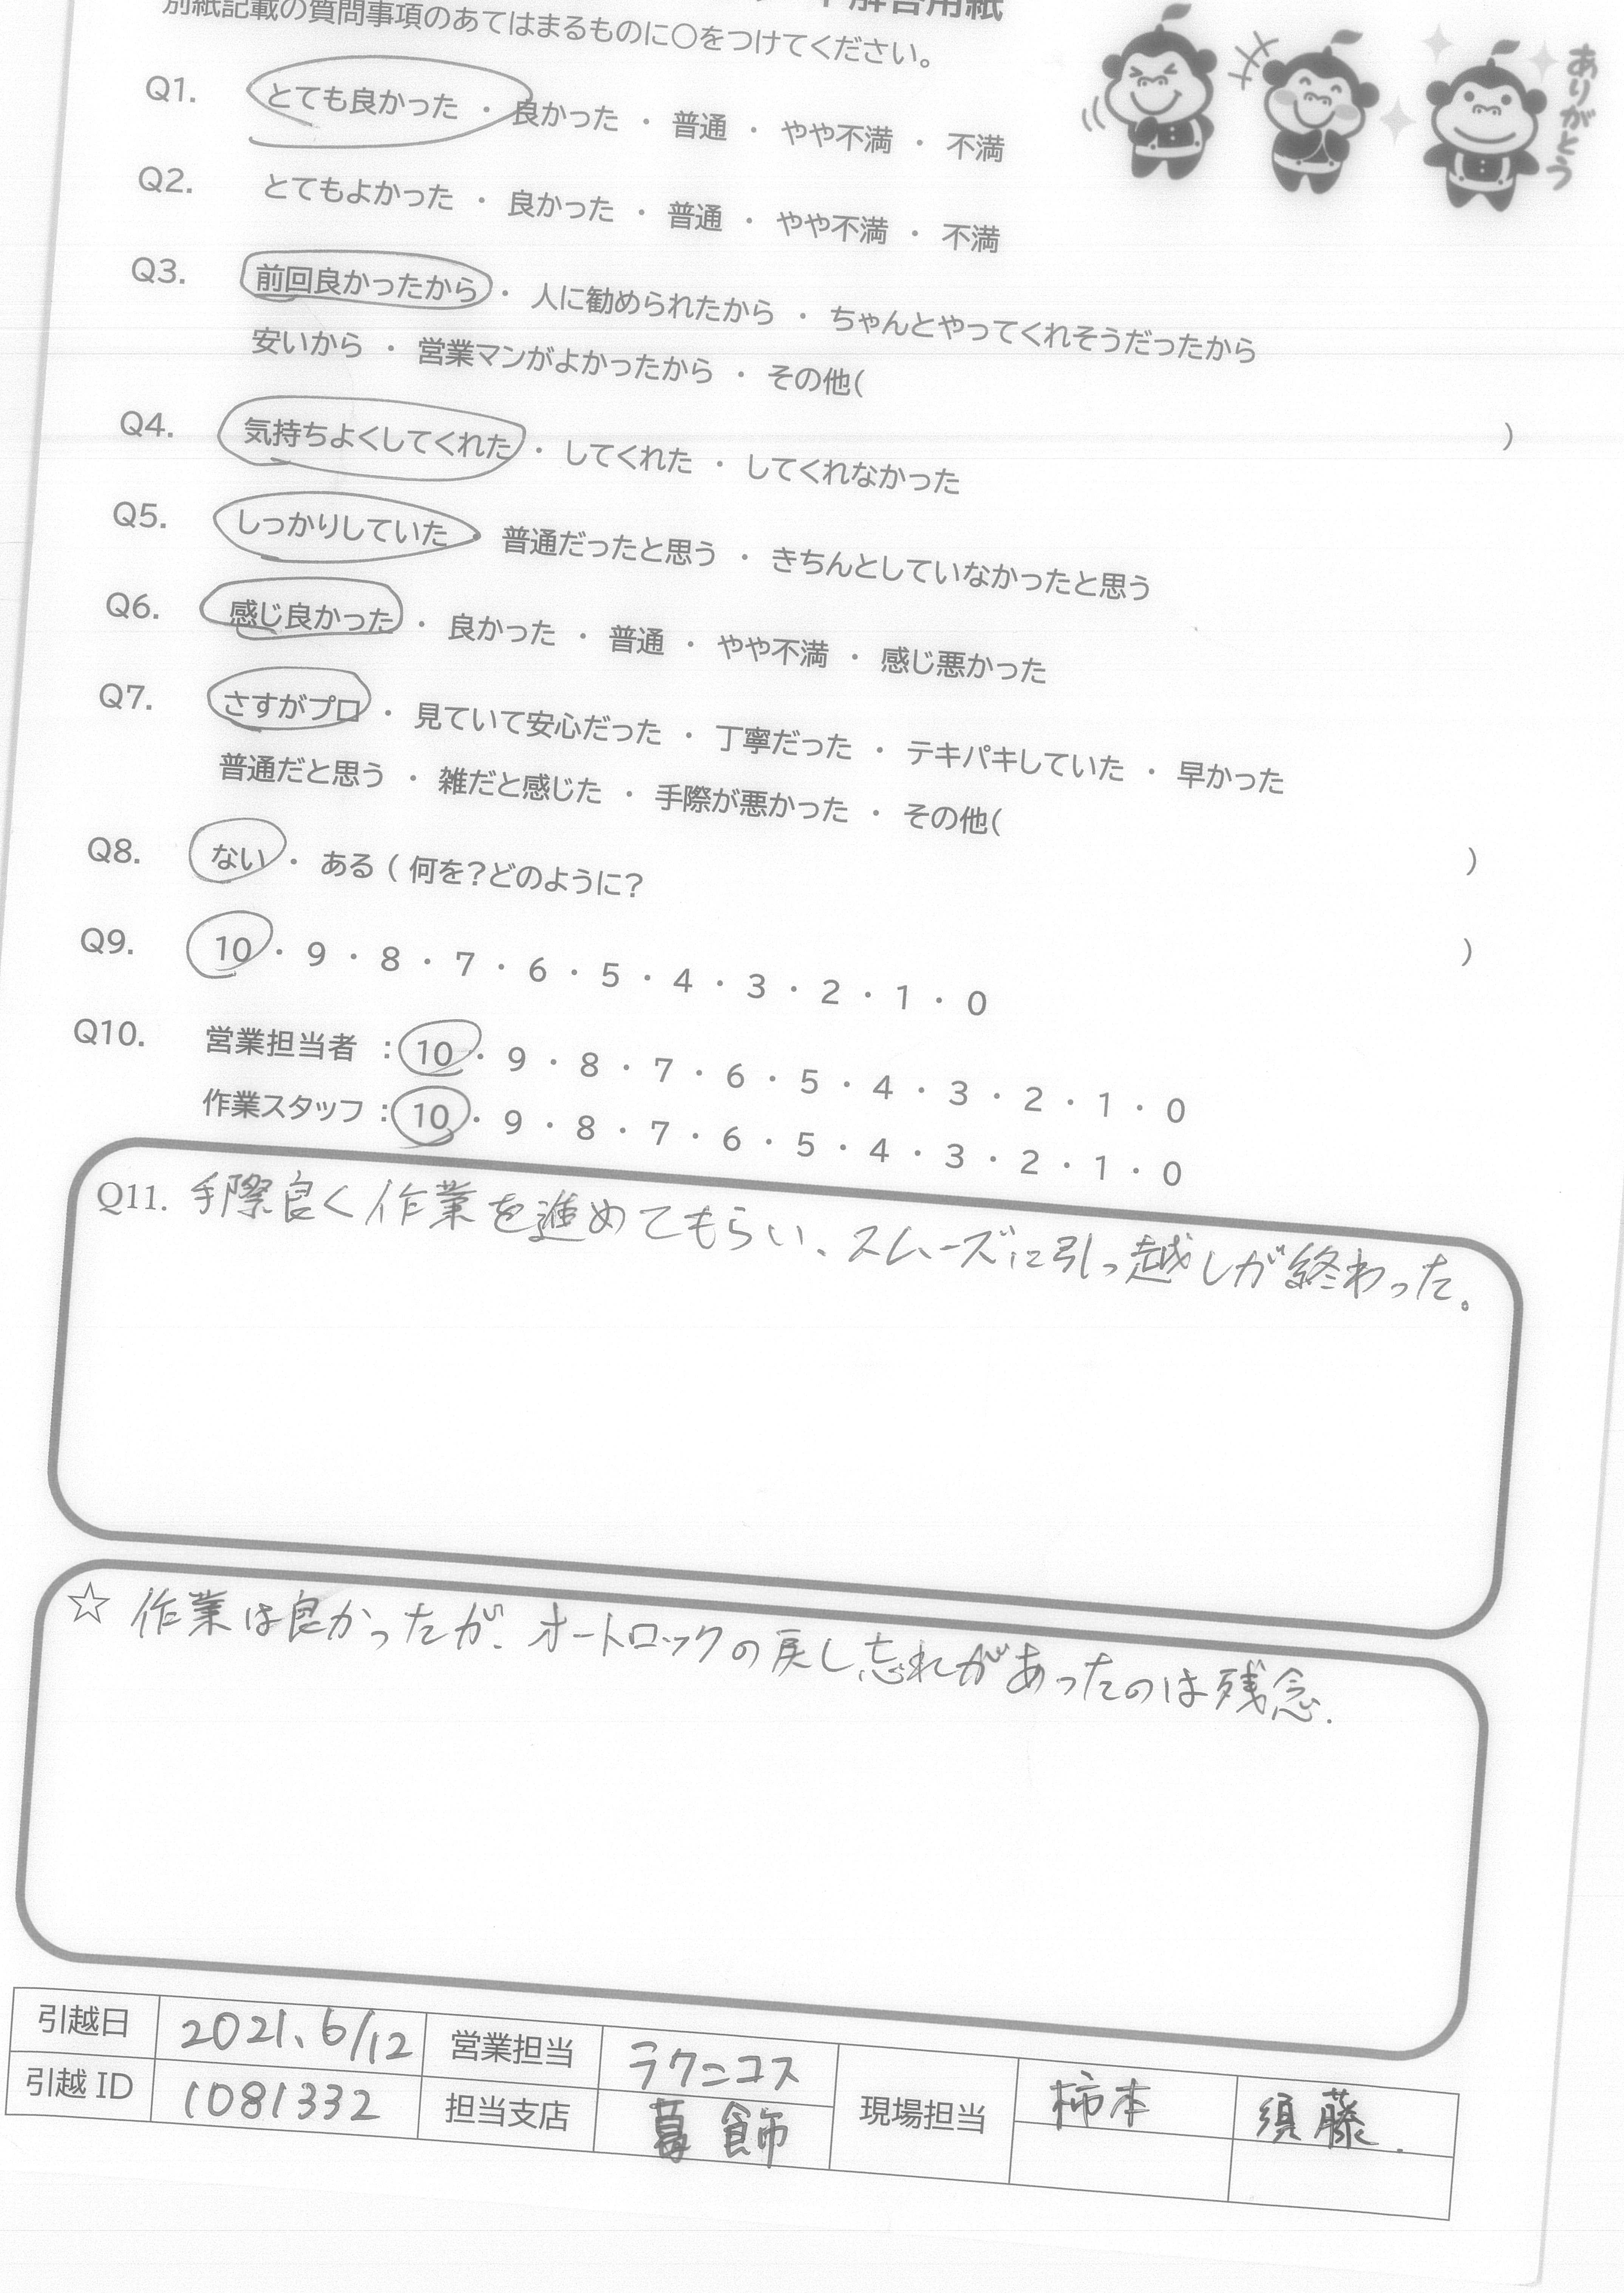 別紙記載の質問事項のあてはまるものに○をつけてください。
ありがとう
Q1. とても良かった ・ 良かった ・ 普通 ・ やや不満 ・ 不満
Q2. とてもよかった ・ 良かった ・ 普通 ・ やや不満 ・ 不満
Q3. 前回良かったから ・ 人に勧められたから ・ ちゃんとやってくれそうだったから
安いから ・ 営業マンがよかったから ・ その他( )
Q4. 気持ちよくしてくれた ・ してくれた ・ してくれなかった
Q5. しっかりしていた 普通だったと思う ・ きちんとしていなかったと思う
Q6. 感じ良かった ・ 良かった ・ 普通 ・ やや不満 ・ 感じ悪かった
Q7. さすがプロ ・ 見ていて安心だった ・ 丁寧だった ・ テキパキしていた ・ 早かった
普通だと思う ・ 雑だと感じた ・ 手際が悪かった ・ その他( )
Q8. ない ・ ある ( 何を?どのように? )
Q9. 10 ・ 9 ・ 8 ・ 7 ・ 6 ・ 5 ・ 4 ・ 3 ・ 2 ・ 1 ・ 0
Q10. 営業担当者 : 10 ・ 9 ・ 8 ・ 7 ・ 6 ・ 5 ・ 4 ・ 3 ・ 2 ・ 1 ・ 0
作業スタッフ : 10 ・ 9 ・ 8 ・ 7 ・ 6 ・ 5 ・ 4 ・ 3 ・ 2 ・ 1 ・ 0
Q11. 手際良く作業を進めてもらい、スムーズに引っ越しが終わった。
☆ 作業は良かったが、オートロックの戻し忘れがあったのは残念.
引越日 2021、6/12 営業担当 ラクニコス 現場担当 柿本 須藤.
引越 ID 1081332 担当支店 葛飾